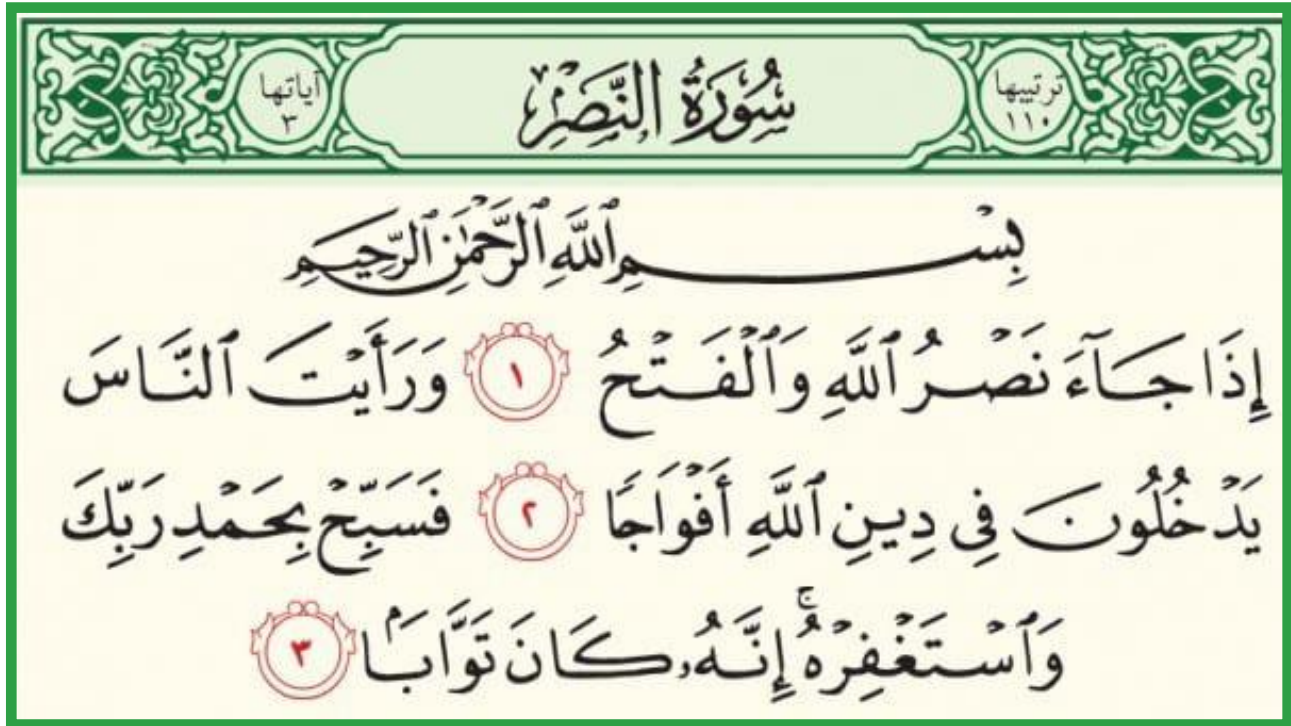 ترتيبها ١١٠ سُورَةُ النَّصْرِ آياتها ٣
بِسْمِ ٱللَّهِ ٱلرَّحْمَٰنِ ٱلرَّحِيمِ
إِذَا جَآءَ نَصْرُ ٱللَّهِ وَٱلْفَتْحُ ١ وَرَأَيْتَ ٱلنَّاسَ
يَدْخُلُونَ فِى دِينِ ٱللَّهِ أَفْوَاجًا ٢ فَسَبِّحْ بِحَمْدِ رَبِّكَ
وَٱسْتَغْفِرْهُ ۚ إِنَّهُۥ كَانَ تَوَّابَۢا ٣